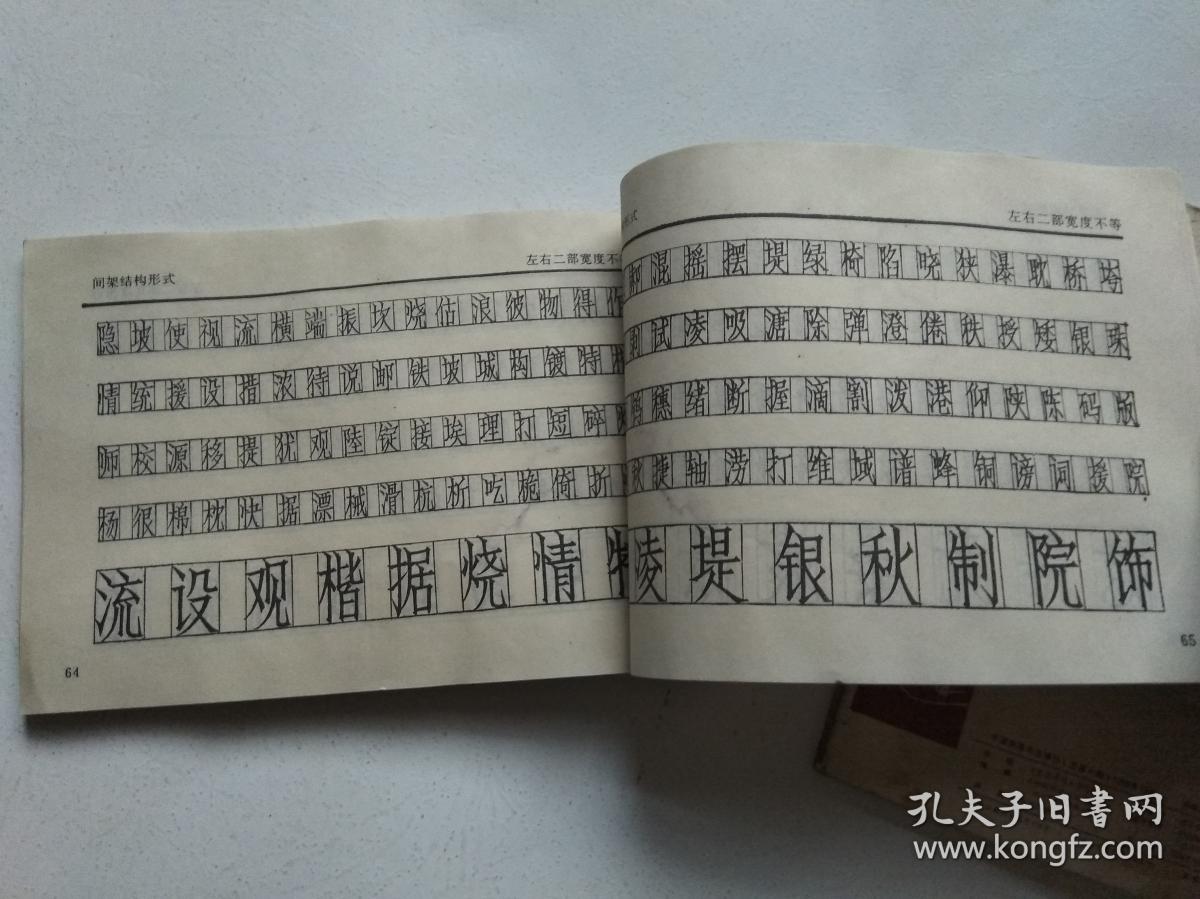 间架结构形式
左右二部宽度不
隐坡使视流横端振坎烧估浪彼物得作
情统援设措淡待说邮铁坡城构镀特
师校源移提犹观陸锭接埃理打短碎
杨很棉枕快据漂械滑杭析吃脆倚折
流设观楷据烧情特
64
形式
左右二部宽度不等
混摇摆堤绿椅陷晓狭瀑耽桥垮
刺试凌吸溏除弹澄倦秩授矮银珠
穗绪断握滴割泼港仰陕陈码版
秋捷轴涝打维域谱蜂铜谤词援院
凌堤银秋制院饰
65
孔夫子旧书网
www.kongfz.com